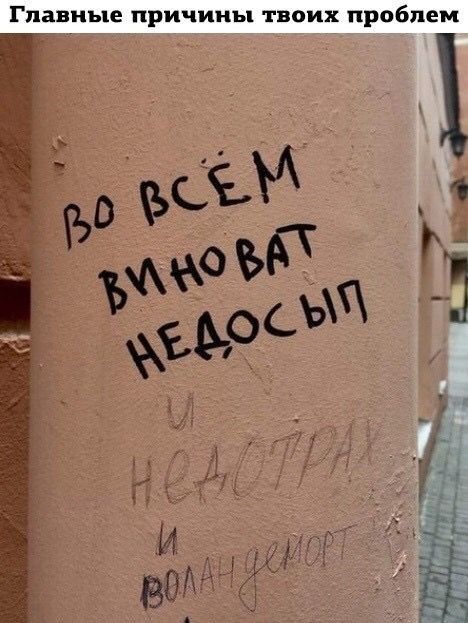 Главные причины твоих проблем
ВО ВСЁМ
ВИНОВАТ
НЕДОСЫП
и
НЕДОТРАХ
и
ВОЛАНДЕМОРТ